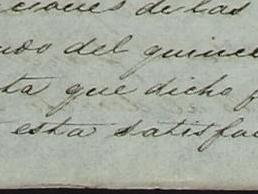 ciones de las
ndo del quince
ta que dicho f
esta satisfac